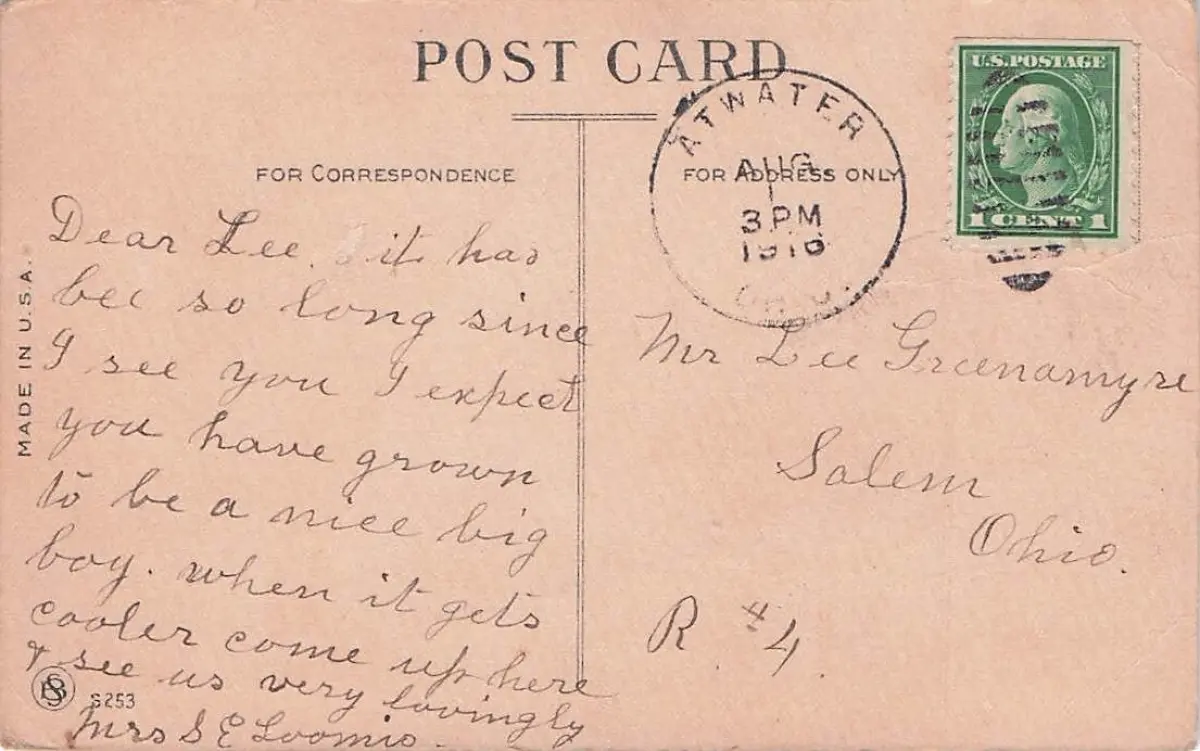 POST CARD
FOR CORRESPONDENCE
FOR ADDRESS ONLY
MADE IN U.S.A.
U.S. POSTAGE
1 CENT 1
ATWATER
AUG
1
3 PM
1916
OHIO
Dear Lee. it has
bee so long since
I see you I expect
you have grown
to be a nice big
boy. when it gets
cooler come up here
& see us very lovingly
Mrs S E Loomis.
Mr Lee Greenamyre
Salem
Ohio.
R #4.
S253